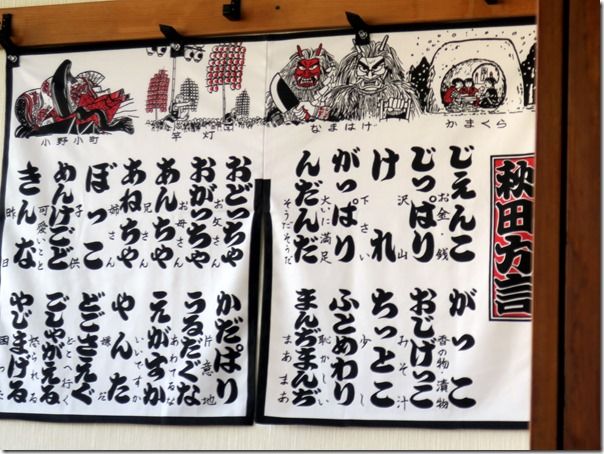 秋田方言
かまくら
なまはげ
竿灯
小野小町
じぇんこ
お金・銭
じっぱり
沢山
けれ
下さい
がっぱり
大いに満足
んだんだ
そうだそうだ
がっこ
香の物・漬物
おしげっこ
みそ汁
ちっとこ
少し
ふとめわり
恥かしい
まんぢまんぢ
まあまあ
おどっちゃ
お父さん
おがっちゃ
お母さん
あんちゃ
兄さん
あねちゃ
姉さん
ぼっこ
子供
めんけごど
可愛いこと
きんな
昨日
かだぱり
片意地
うるだぐな
あわてるな
えがすか
いいですか
やんた
嫌だ
どごさえぐ
どこへ行く
ごしゃがえる
怒られる
やじまげる